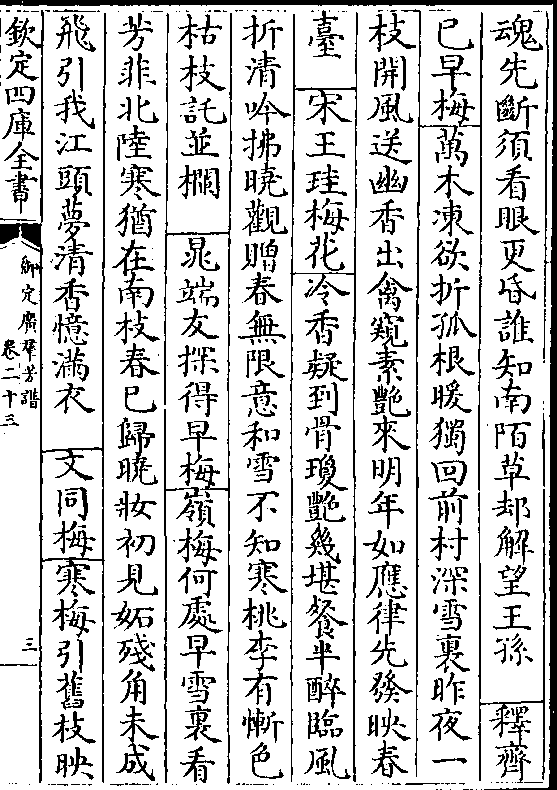 魂先斷須看眼更昏誰知南陌草却解望王孫　釋齊
已早梅萬木凍欲折孤根暖獨回前村深雪裏昨夜一
枝開風送幽香出禽窺素艷來明年如應律先發映春
臺　宋王珪梅花冷香疑到骨瓊艷幾堪餐半醉臨風
折清吟拂曉觀贈春無限意和雪不知寒桃李有慚色
枯枝託並欄　晁端友探得早梅嶺梅何處早雪裏看
芳菲北陸寒猶在南枝春已歸曉妝初見妬殘角未成
飛引我江頭夢清香憶滿衣　文同梅寒梅引舊枝映
欽定四庫全書
御定廣羣芳譜
卷二十三
三